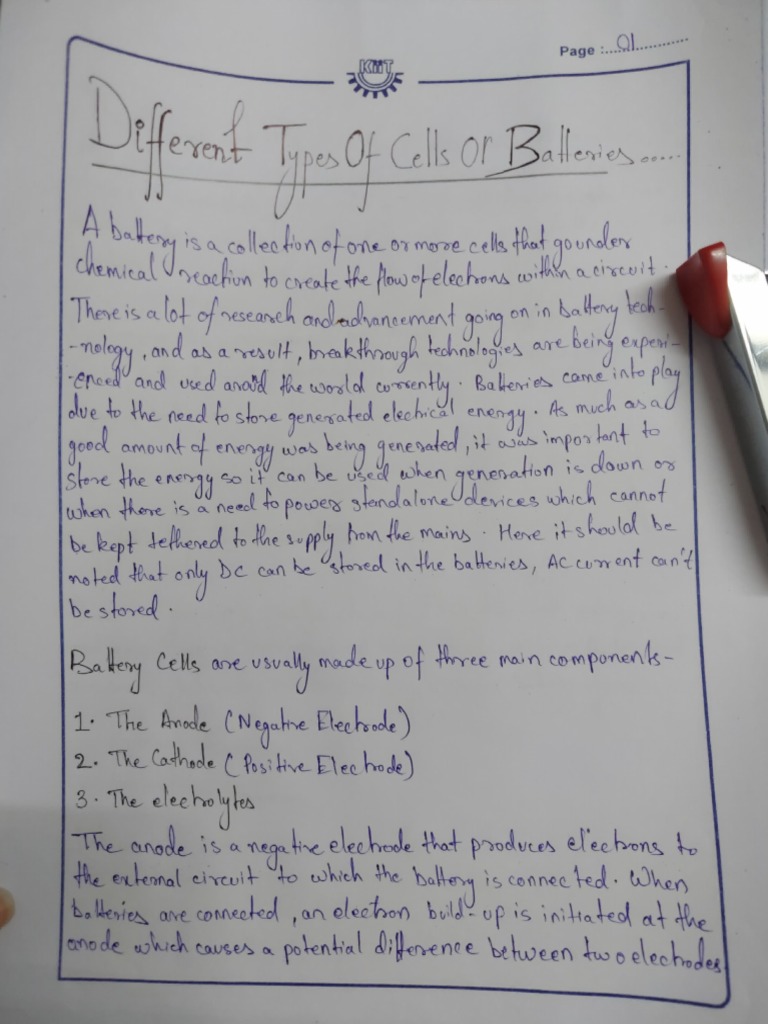 Page :....01..............
KiiT
Different Types Of Cells Or Batteries.....
A battery is a collection of one or more cells that go under
chemical reaction to create the flow of electrons within a circuit.
There is a lot of research and advancement going on in battery tech-
-nology, and as a result, breakthrough technologies are being experi-
-enced and used around the world currently. Batteries came into play
due to the need to store generated electrical energy. As much as a
good amount of energy was being generated, it was important to
store the energy so it can be used when generation is down or
when there is a need to power standalone devices which cannot
be kept tethered to the supply from the mains. Here it should be
noted that only DC can be stored in the batteries, AC current can't
be stored.
Battery Cells are usually made up of three main components-
1. The Anode (Negative Electrode)
2. The Cathode (Positive Electrode)
3. The electrolytes
The anode is a negative electrode that produces electrons to
the external circuit to which the battery is connected. When
batteries are connected, an electron build-up is initiated at the
anode which causes a potential difference between two electrodes